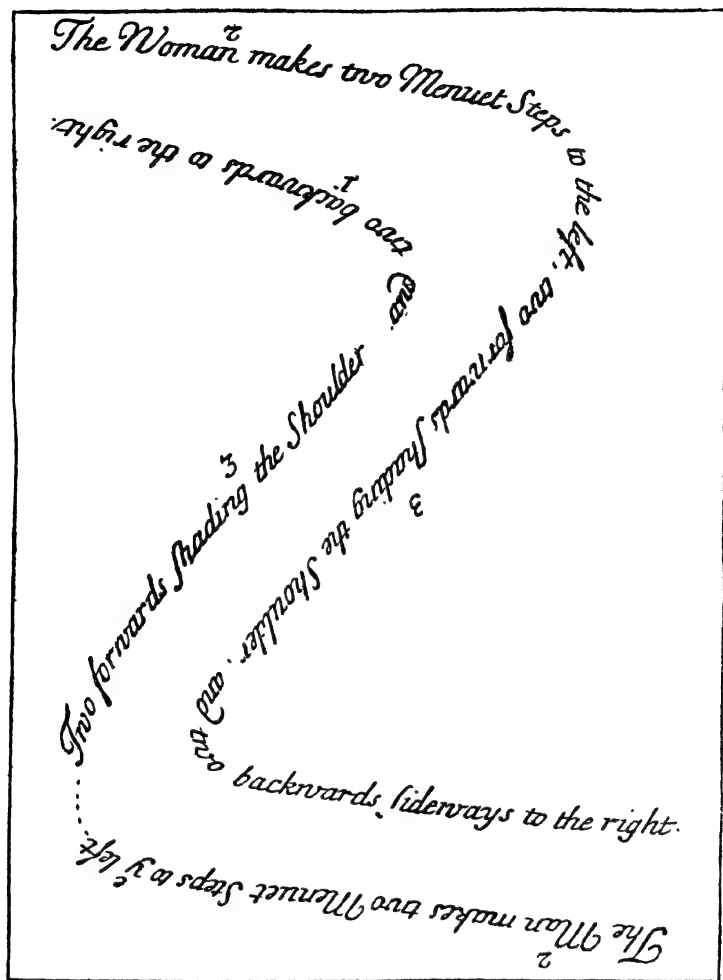 2
The Woman makes two Menuet Steps to the left, two forwards ſhading the Shoulder. and two backwards ſideways to the right.
3
2
The Man makes two Menuet Steps to yᵉ left.
Two forwards ſhading the Shoulder
3
and two backwards to the right.
1